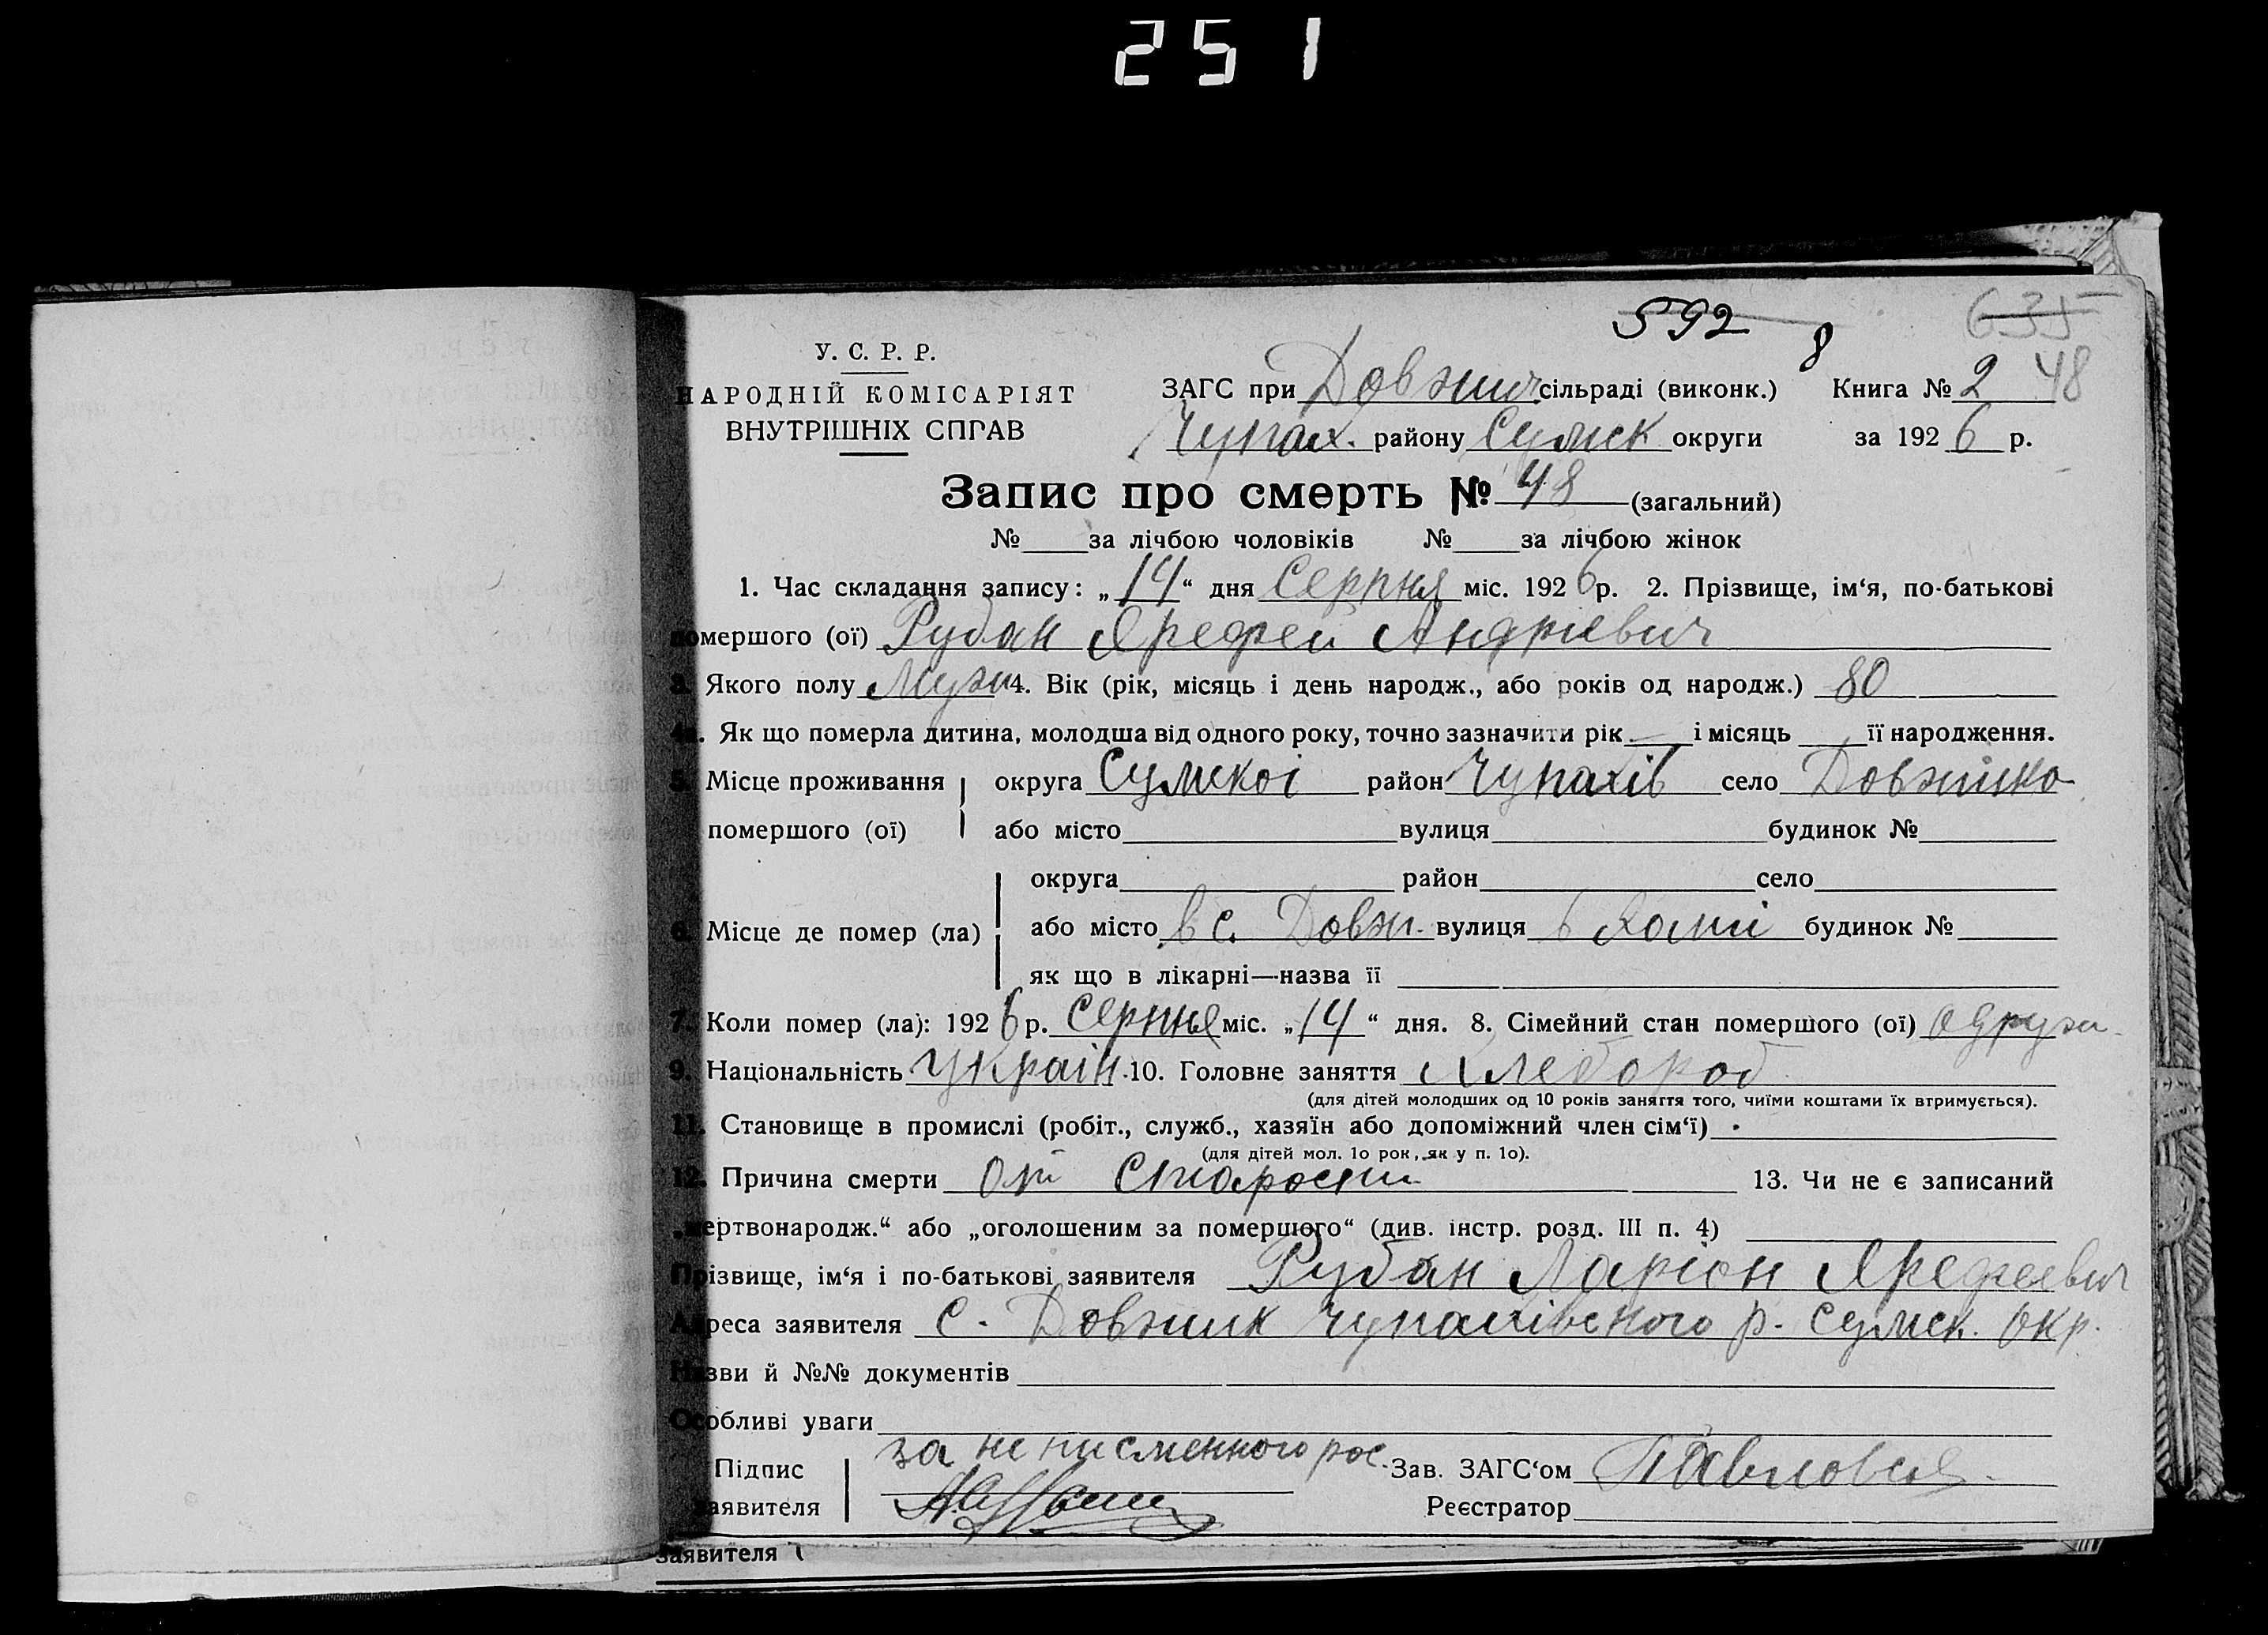 251
592
8
635
У. С. Р. Р.
НАРОДНІЙ КОМІСАРІЯТ
ВНУТРІШНІХ СПРАВ
ЗАГС при Довжич сільраді (виконк.) Книга № 2 48
Чупах. району Сумск округи за 1926 р.
Запис про смерть № 48 (загальний)
№ за лічбою чоловіків № за лічбою жінок
1. Час складання запису: „14“ дня Серпня міс. 1926 р. 2. Прізвище, ім‘я, по-батькові
помершого (ої) Рубан Ярефей Андріевич
3. Якого полу Мужч 4. Вік (рік, місяць і день народж., або років од народж.) 80
4а. Як що померла дитина, молодша від одного року, точно зазначити рік — і місяць її народження.
5. Місце проживання округа Сумскоі район Чупахів село Довжико
помершого (ої) або місто вулиця будинок №
округа район село
6. Місце де помер (ла) або місто в с. Довж. вулиця в домі будинок №
як що в лікарні—назва її
7. Коли помер (ла): 1926 р. Серпня міс. „14“ дня. 8. Сімейний стан помершого (ої) одруж.
9. Національність Україн. 10. Головне заняття Хлебороб
(для дітей молодших од 10 років заняття того, чиїми коштами їх втримується).
11. Становище в промислі (робіт., служб., хазяїн або допоміжний член сім‘ї)
(для дітей мол. 1о рок, як у п. 1о).
12. Причина смерти от старости 13. Чи не є записаний
„мертвонародж.“ або „оголошеним за помершого“ (див. інстр. розд. III п. 4)
Прізвище, ім‘я і по-батькові заявителя Рубан Ларіон Ярефеевич
Адреса заявителя с. Довжик Чупахівского р. Сумск. окр.
Назви й №№ документів
Особливі уваги
Підпис за не письменного рос. Зав. ЗАГС‘ом
заявителя Реєстратор
заявителя